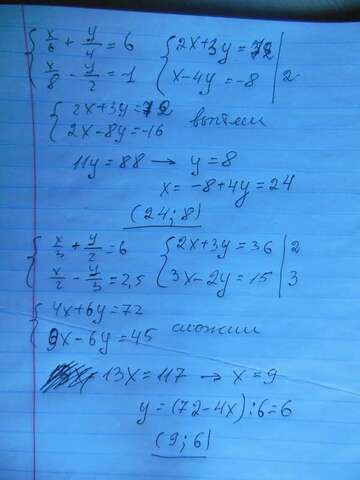 x/6 + y/4 = 6 2x+3y=72
x/8 - y/2 = -1 x-4y=-8 | 2
2x+3y=72
2x-8y=-16 вычтем
11y=88 → y=8
x=-8+4y=24
(24; 8)
x/3 + y/2 = 6 2x+3y=36 | 2
x/2 - y/3 = 2,5 3x-2y=15 | 3
4x+6y=72
9x-6y=45 сложим
13x=117 → x=9
y=(72-4x):6=6
(9; 6)